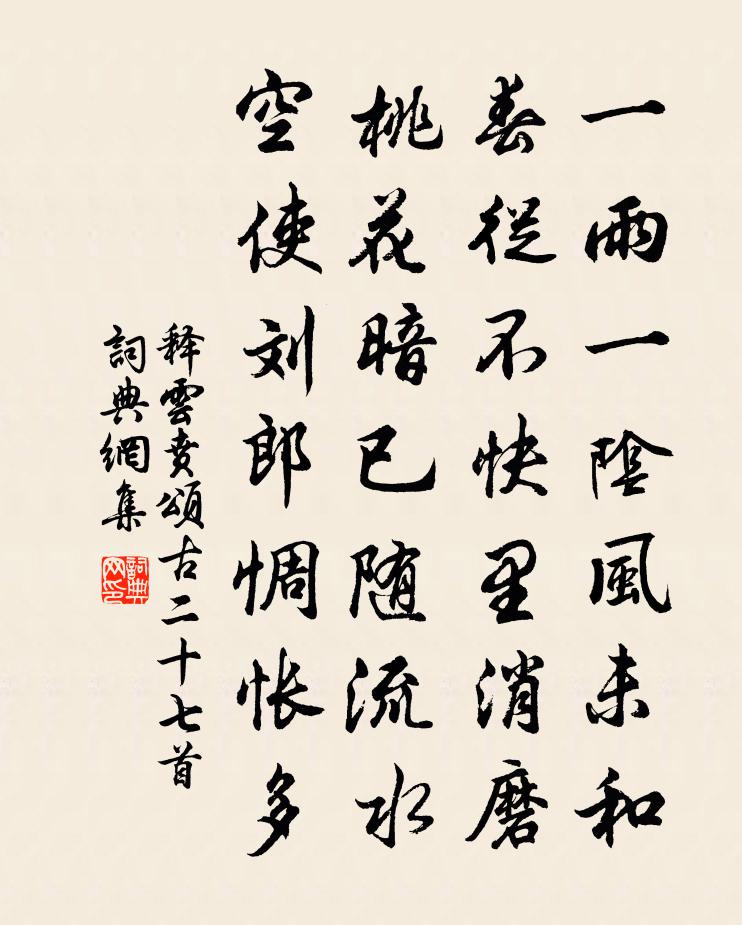 一雨一陰風未和
春從不快里消磨
桃花暗已随流水
空使刘郎惆怅多
释雲賁頌古二十七首
詞典網集
詞典网印